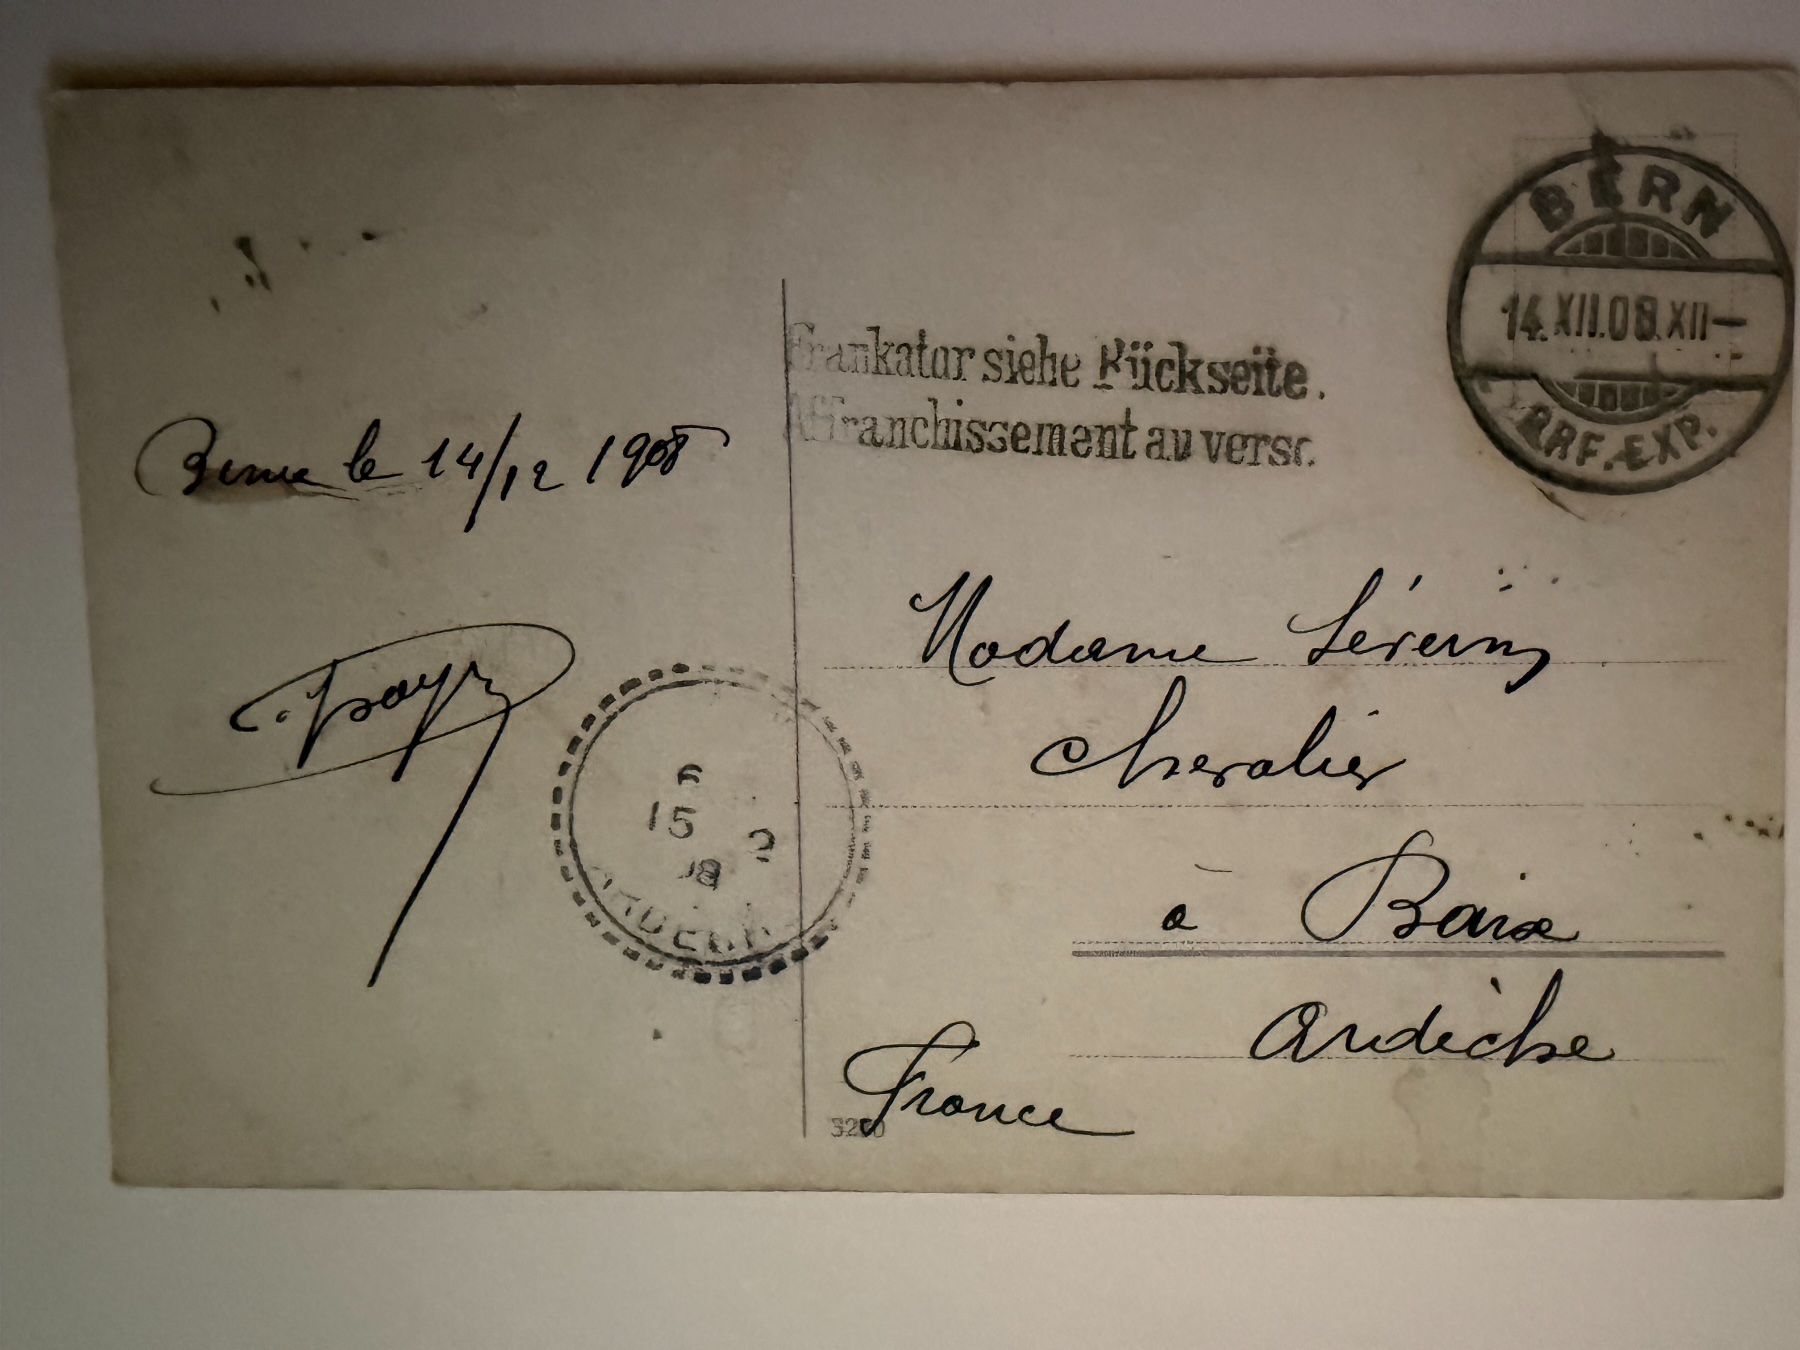 BERN
14.XII.08.XII—
BRF.EXP.
Frankatur siehe Rückseite.
Affranchissement au verso.
Berne le 14/12 1908
Madame Séverin
Chevalier
15 2
08
ARDECHE
à Baix
Ardèche
France